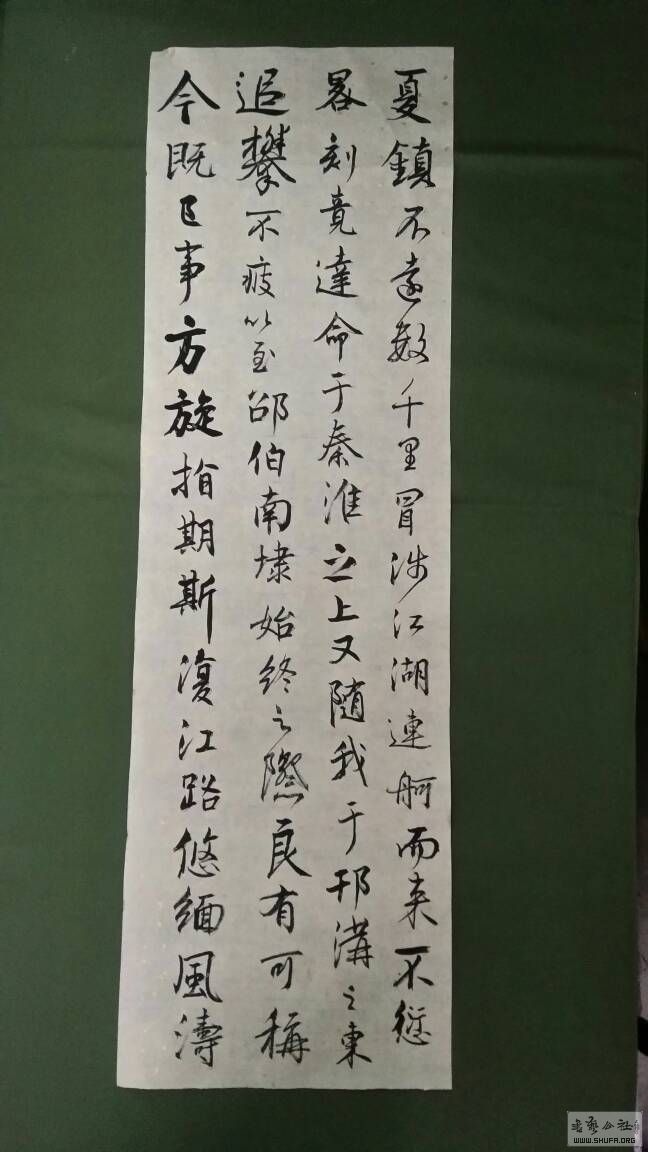 夏鎮不遠數千里冒涉江湖連舸而来不愆
晷刻竟達命于秦淮之上又随我于邗溝之東
追攀不疲以至邵伯南埭始終之際良有可稱
今既已事方旋指期斯復江路悠緬風濤
書藝公社
WWW.SHUFA.ORG